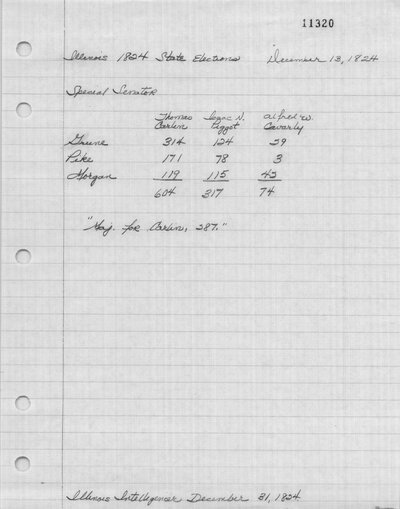 11320
Illinois 1824 State Elections December 13, 1824
Special Senator
Thomas Isaac N. Alfred W.
Carlin Piggot Cavarly
Greene 314 124 29
Pike 171 78 3
Morgan 119 115 42
604 317 74
"Maj. for Carlin, 287."
Illinois Intelligencer December 31, 1824